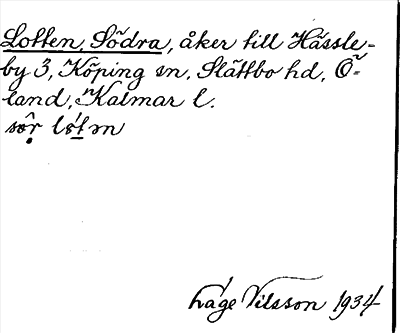 Lotten, Södra, åker till Hässle-
by 3, Köping sn, Slättbo hd, Ö-
land, Kalmar l.
Håge Nilsson 1934